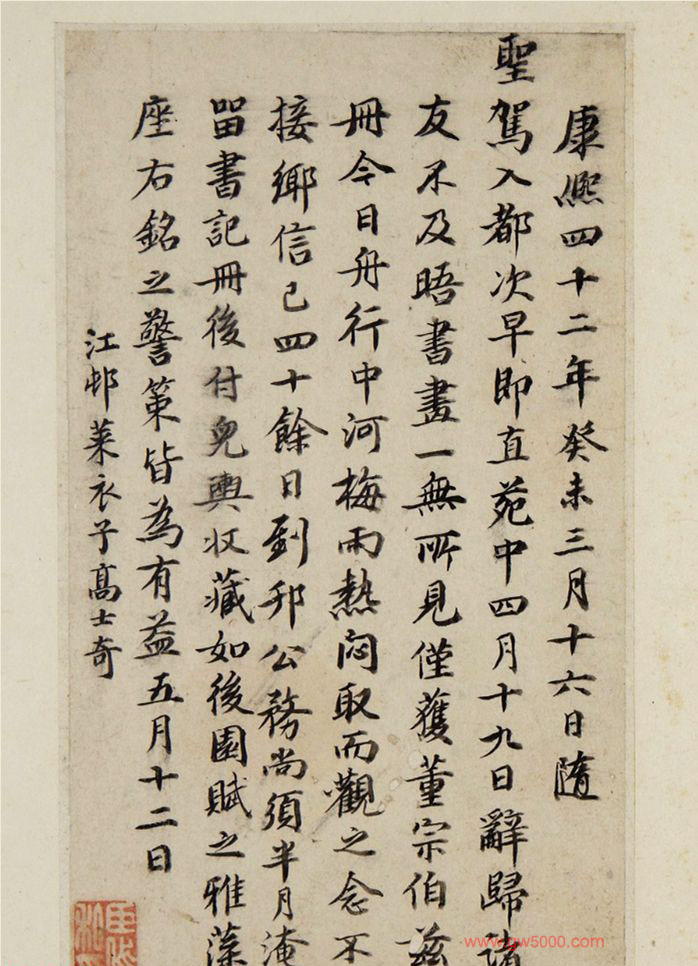 康熙四十二年癸未三月十六日隨
聖駕入都次早即直苑中四月十九日辭歸諸
友不及晤書畫一無所見僅獲董宗伯茲
冊今日舟行中河梅雨熱悶取而觀之念不
接鄉信已四十餘日到邗公務尚須半月淹
留書記冊後付兒輿收藏如後園賦之雅藻
座右銘之警策皆為有益五月十二日
江邨萊衣子高士奇
www.gw5000.com